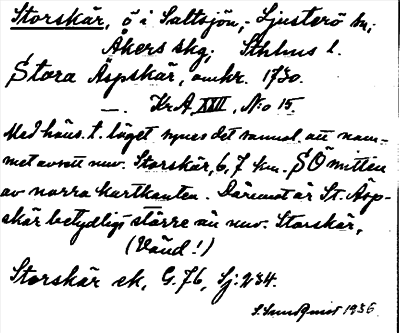 Storskär, ö i Saltsjön, Ljusterö sn;
Åkers skg; Sthlms l.
Stora Äspskär, omkr. 1730.
—. Kr.A. XVII, N:o 15.
Med häns. t. läget synes det sannol. att nam-
net avsett nuv. Storskär, 6,7 km. SÖ mitten
av norra kartkanten. Däremot är St. Äsp-
skär betydligt större än nuv. Storskär,
(Vänd!)
Storskär ek, G. 76, Sj: 234.
S. Sundqvist 1936